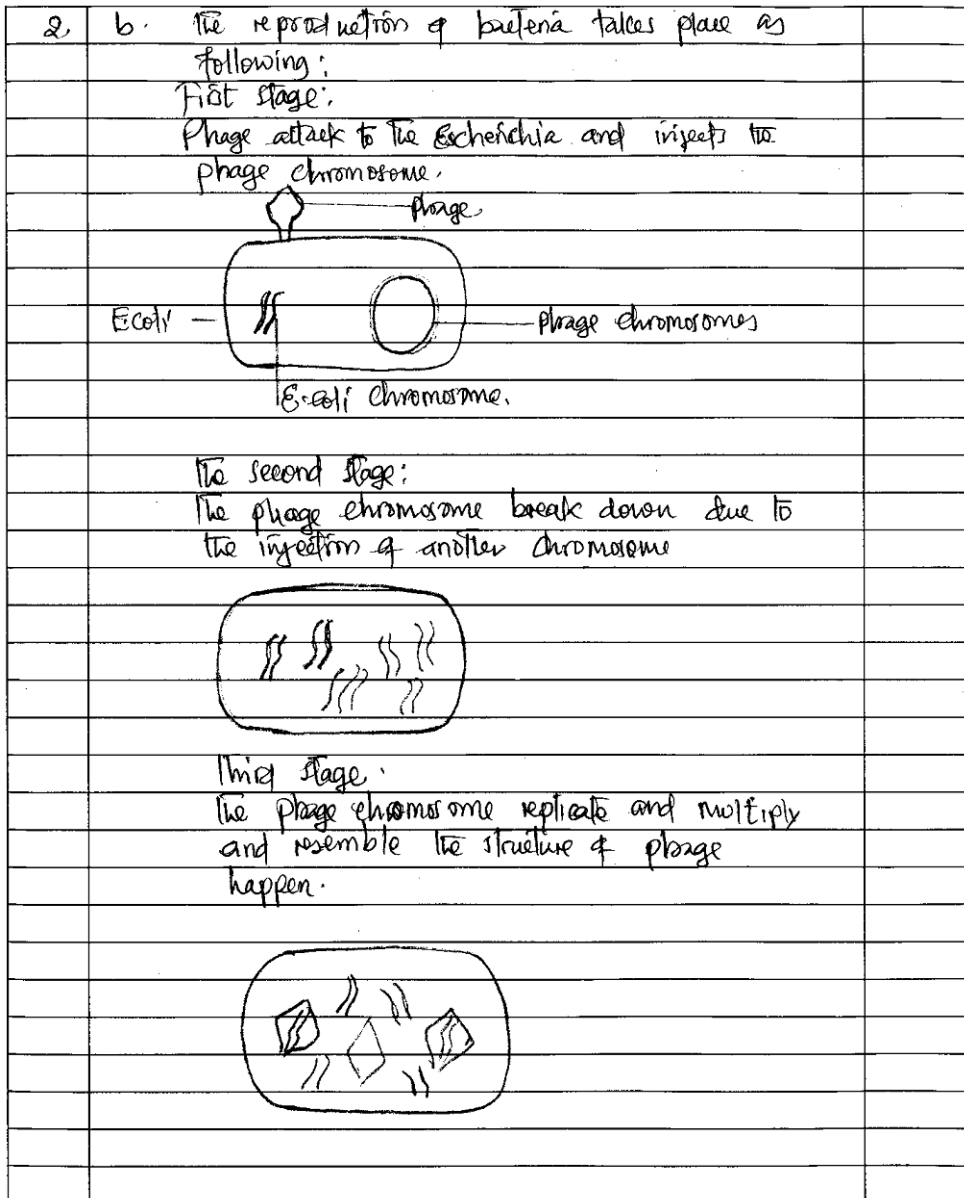 2. b. The reproduction of bacteria takes place as
following:
First stage:
Phage attack to the Escherichia and injects the
phage chromosome.
Phage
E.coli
phage chromosomes
E.coli chromosome.
The second stage:
The phage chromosome break down due to
the injection of another chromosome
Third stage.
The phage chromosome replicate and multiply
and resemble the structure of phage
happen.